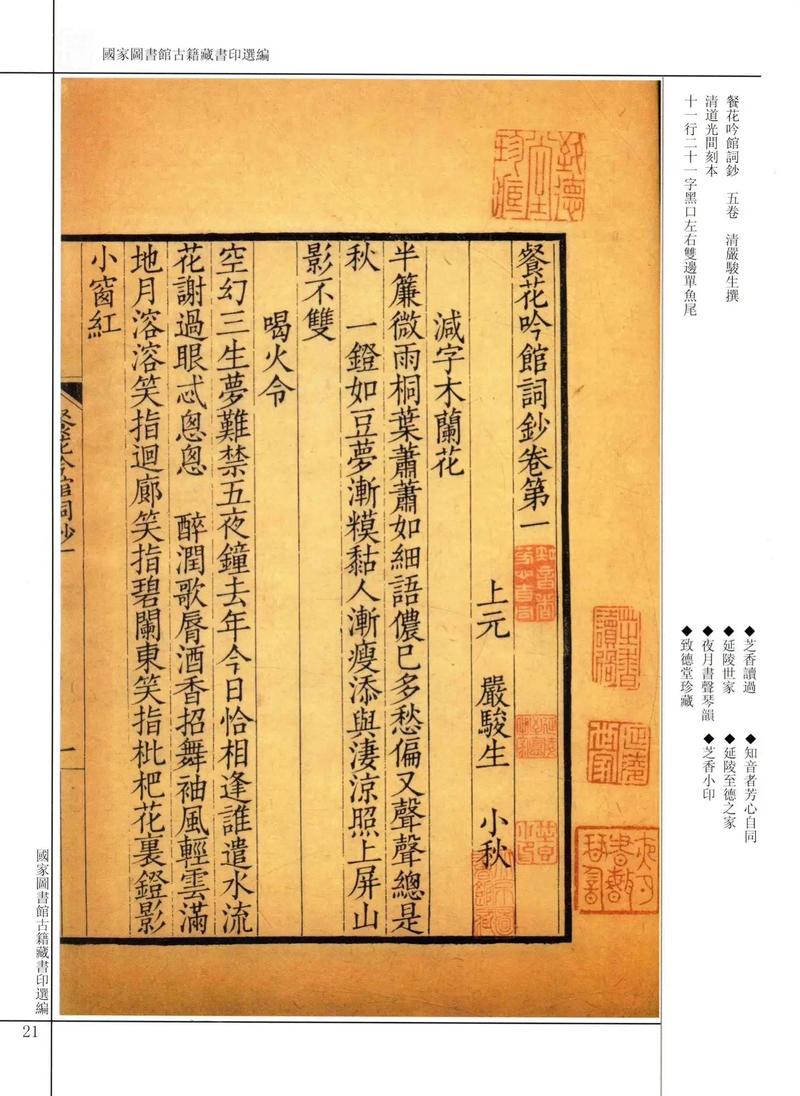 國家圖書館古籍藏書印選編
餐花吟館詞鈔　五卷　清嚴駿生撰
清道光間刻本
十一行二十一字黑口左右雙邊單魚尾
餐花吟館詞鈔卷第一
上元　嚴駿生　小秋
減字木蘭花
半簾微雨桐葉蕭蕭如細語儂已多愁偏又聲聲總是
秋　一鐙如豆夢漸糢黏人漸瘦添與淒涼照上屏山
影不雙
喝火令
空幻三生夢難禁五夜鐘去年今日恰相逢誰遣水流
花謝過眼忒悤悤　醉潤歌脣酒香招舞袖風輕雲滿
地月溶溶笑指迴廊笑指碧闌東笑指枇杷花裏鐙影
小窗紅
餐花吟館詞鈔一
一
致德堂珍藏
知音者芳心自同
芝香讀過
延陵世家
夜月書聲琴韻
延陵至德之家
芝香小印
◆芝香讀過　◆知音者芳心自同
◆延陵世家　◆延陵至德之家
◆夜月書聲琴韻　◆芝香小印
◆致德堂珍藏
國家圖書館古籍藏書印選編
21